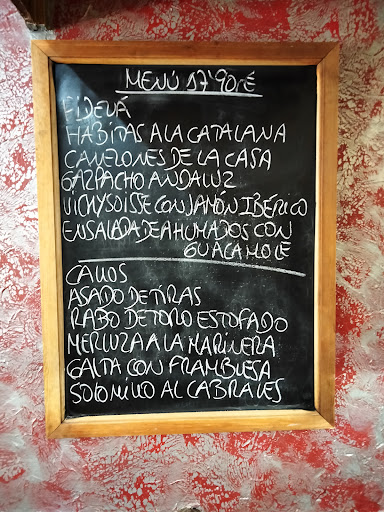 MENÚ 17'90€
FIDEUÁ
HABITAS A LA CATALANA
CANELONES DE LA CASA
GAZPACHO ANDALUZ
VICHYSOISSE CON JAMÓN IBERICO
ENSALADA DE AHUMADOS CON
GUACAMOLE
CALLOS
ASADO DE TIRAS
RABO DE TORO ESTOFADO
MERLUZA A LA MARINERA
GALTA CON FRAMBUESA
SOLOMILLO AL CABRALES